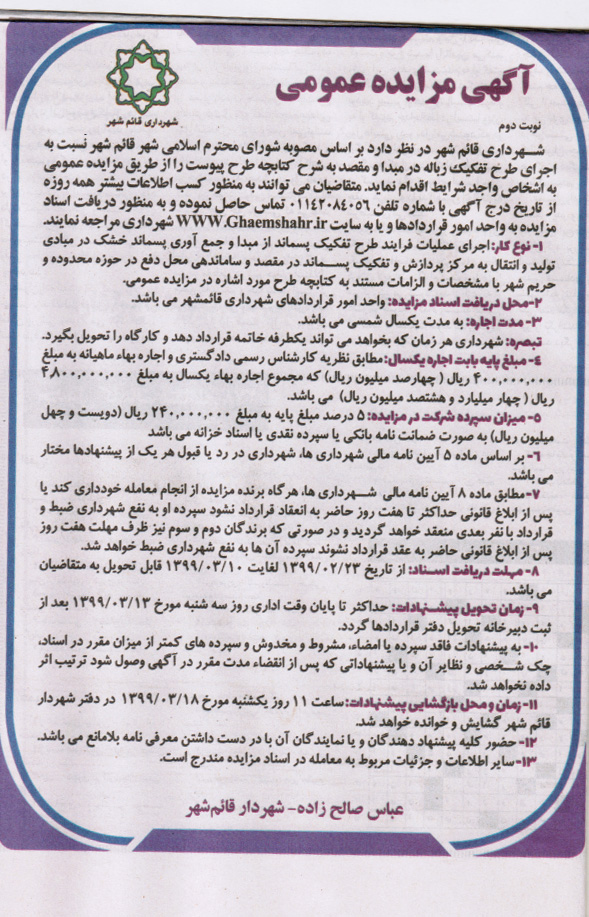 آگهی مزایده عمومی
شهرداری قائم شهر
نوبت دوم
شهرداری قائم شهر در نظر دارد بر اساس مصوبه شورای محترم اسلامی شهر قائم شهر نسبت به
اجرای طرح تفکیک زباله در مبدا و مقصد به شرح کتابچه طرح پیوست را از طریق مزایده عمومی
به اشخاص واجد شرایط اقدام نماید. متقاضیان می توانند به منظور کسب اطلاعات بیشتر همه روزه
از تاریخ درج آگهی با شماره تلفن ۰۱۱۴۲۰۸۴۰۵۶ تماس حاصل نموده و به منظور دریافت اسناد
مزایده به واحد امور قراردادها و یا به سایت WWW.Ghaemshahr.ir شهرداری مراجعه نمایند.
۱- نوع کار: اجرای عملیات فرایند طرح تفکیک پسماند از مبدا و جمع آوری پسماند خشک در مبادی
تولید و انتقال به مرکز پردازش و تفکیک پسماند در مقصد و ساماندهی محل دفع در حوزه محدوده و
حریم شهر با مشخصات و الزامات مستند به کتابچه طرح مورد اشاره در مزایده عمومی.
۲- محل دریافت اسناد مزایده: واحد امور قراردادهای شهرداری قائمشهر می باشد.
۳- مدت اجاره: به مدت یکسال شمسی می باشد.
تبصره: شهرداری هر زمان که بخواهد می تواند یکطرفه خاتمه قرارداد دهد و کارگاه را تحویل بگیرد.
۴- مبلغ پایه بابت اجاره یکسال: مطابق نظریه کارشناس رسمی دادگستری و اجاره بهاء ماهیانه به مبلغ
۴۰۰,۰۰۰,۰۰۰ ریال ( چهارصد میلیون ریال) که مجموع اجاره بهاء یکسال به مبلغ ۴,۸۰۰,۰۰۰,۰۰۰
ریال ( چهار میلیارد و هشتصد میلیون ریال) می باشد.
۵- میزان سپرده شرکت در مزایده: ۵ درصد مبلغ پایه به مبلغ ۲۴۰,۰۰۰,۰۰۰ ریال (دویست و چهل
میلیون ریال) به صورت ضمانت نامه بانکی یا سپرده نقدی یا اسناد خزانه می باشد
۶- بر اساس ماده ۵ آیین نامه مالی شهرداری ها، شهرداری در رد یا قبول هر یک از پیشنهادها مختار
می باشد.
۷- مطابق ماده ۸ آیین نامه مالی شهرداری ها، هرگاه برنده مزایده از انجام معامله خودداری کند یا
پس از ابلاغ قانونی حداکثر تا هفت روز حاضر به انعقاد قرارداد نشود سپرده او به نفع شهرداری ضبط و
قرارداد با نفر بعدی منعقد خواهد گردید و در صورتی که برندگان دوم و سوم نیز ظرف مهلت هفت روز
پس از ابلاغ قانونی حاضر به عقد قرارداد نشوند سپرده آن ها به نفع شهرداری ضبط خواهد شد.
۸- مهلت دریافت اسناد: از تاریخ ۱۳۹۹/۰۲/۲۳ لغایت ۱۳۹۹/۰۳/۱۰ قابل تحویل به متقاضیان
می باشد.
۹- زمان تحویل پیشنهادات: حداکثر تا پایان وقت اداری روز سه شنبه مورخ ۱۳۹۹/۰۳/۱۳ بعد از
ثبت دبیرخانه تحویل دفتر قراردادها گردد.
۱۰- به پیشنهادات فاقد سپرده یا امضاء، مشروط و مخدوش و سپرده های کمتر از میزان مقرر در اسناد،
چک شخصی و نظایر آن و یا پیشنهاداتی که پس از انقضاء مدت مقرر در آگهی وصول شود ترتیب اثر
داده نخواهد شد.
۱۱- زمان و محل بازگشایی پیشنهادات: ساعت ۱۱ روز یکشنبه مورخ ۱۳۹۹/۰۳/۱۸ در دفتر شهردار
قائم شهر گشایش و خوانده خواهد شد.
۱۲- حضور کلیه پیشنهاد دهندگان و یا نمایندگان آن با در دست داشتن معرفی نامه بلامانع می باشد.
۱۳- سایر اطلاعات و جزئیات مربوط به معامله در اسناد مزایده مندرج است.
عباس صالح زاده- شهردار قائم‌شهر